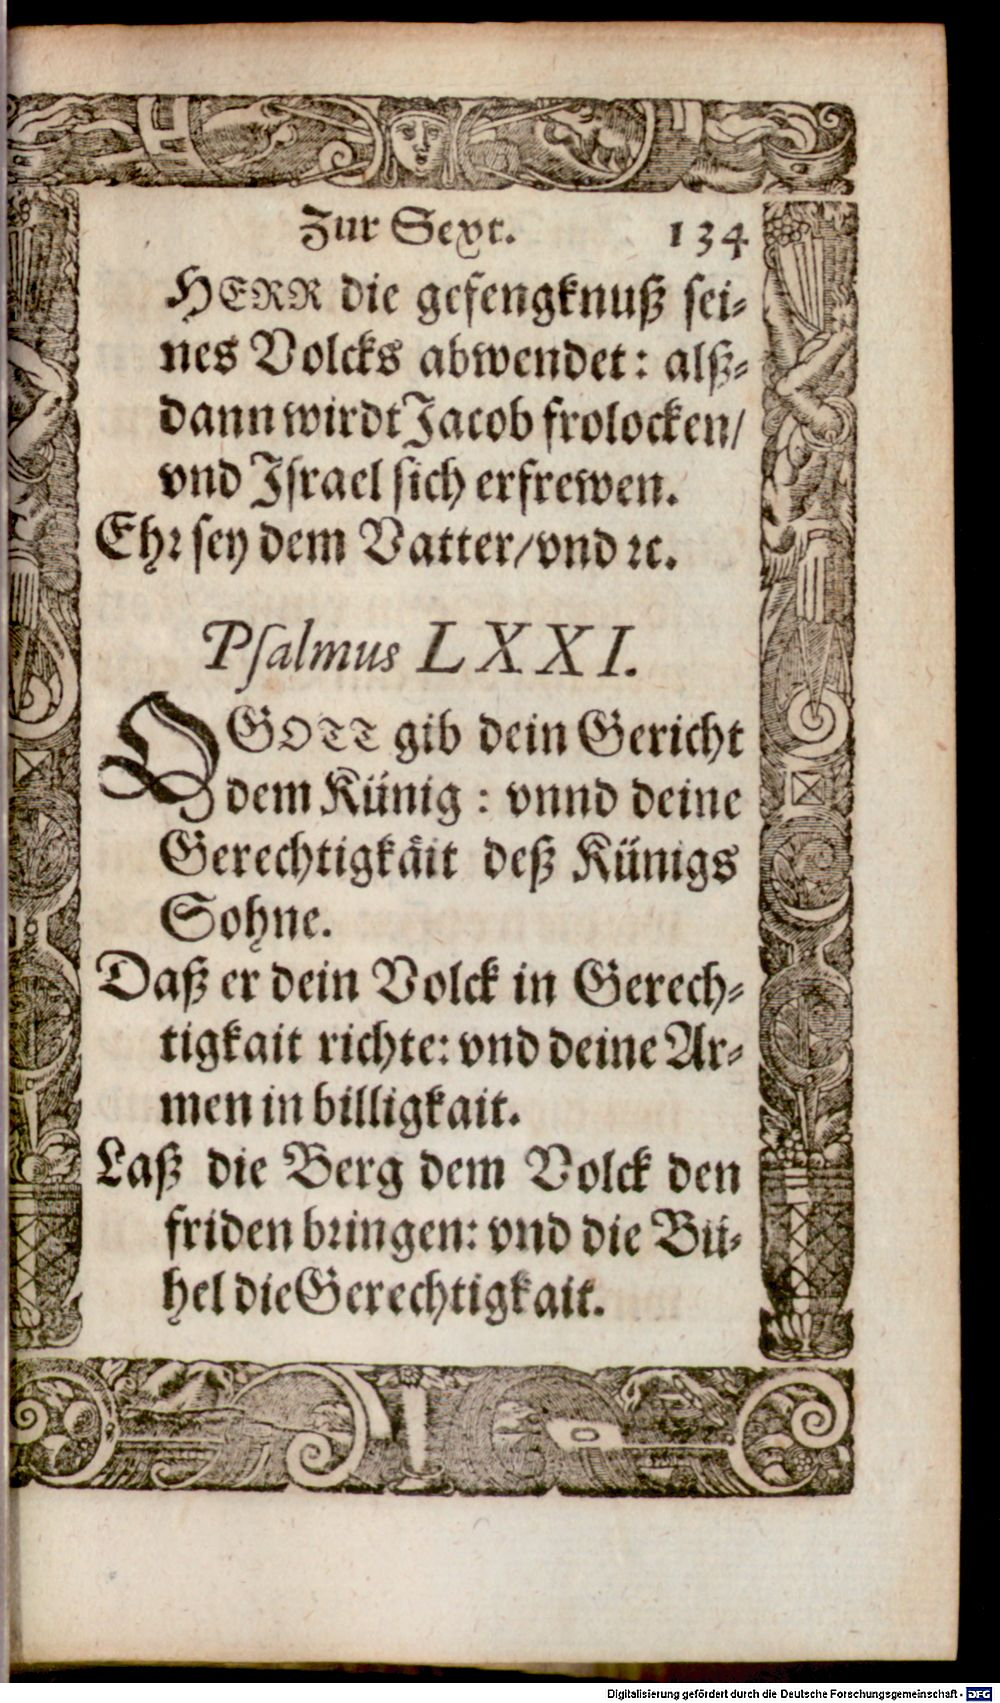 Zur Sext. 134
HERR die gefengknuß sei⸗
nes Volcks abwendet: alß⸗
dann wirdt Jacob frolocken/
vnd Israel sich erfrewen.
Ehꝛ sey dem Vatter/vnd ꝛc.
Psalmus LXXI.
O GOTT gib dein Gericht
dem Künig: vnnd deine
Gerechtigkäit deß Künigs
Sohne.
Daß er dein Volck in Gerech⸗
tigkait richte: vnd deine Ar⸗
men in billigkait.
Laß die Berg dem Volck den
friden bꝛingen: vnd die Bü⸗
hel die Gerechtigkait.
Digitalisierung gefördert durch die Deutsche Forschungsgemeinschaft - DFG